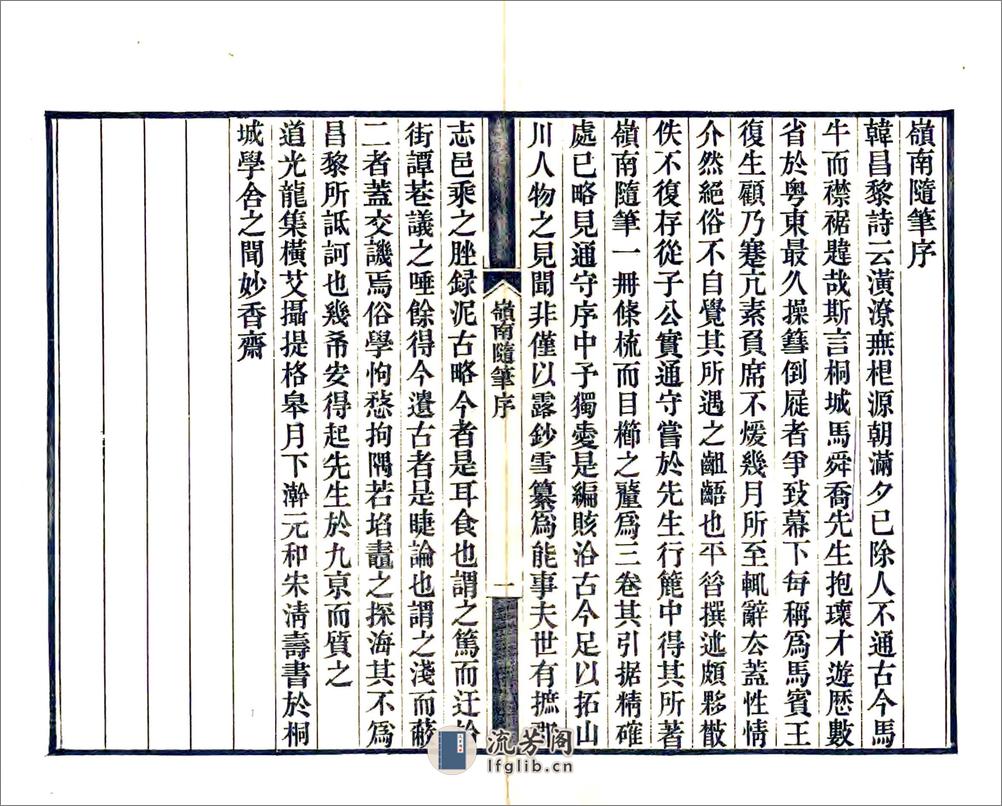 嶺南隨筆序
韓昌黎詩云潢潦無根源朝滿夕已除人不通古今馬
牛而襟裾韙哉斯言桐城馬舜喬先生抱瓌才遊歷數
省於粵東最久操篲倒屣者爭致幕下每稱爲馬賓王
復生顧乃蹇亢素負席不煖幾月所至輒辭去蓋性情
介然絕俗不自覺其所遇之齟齬也平昝撰述頗夥散
佚不復存從子公實通守嘗於先生行簏中得其所著
嶺南隨筆一冊條梳而目櫛之釐爲三卷其引据精確
處已略見通守序中予獨愛是編賅洽古今足以拓山
川人物之見聞非僅以露鈔雪纂爲能事夫世有摭
志邑乘之脞録泥古略今者是耳食也謂之篤而迂於
街譚巷議之唾餘得今遺古者是睫論也謂之淺而蔽
二者蓋交譏焉俗學怐愁拘隅若埳鼃之探海其不爲
昌黎所詆訶也幾希安得起先生於九京而質之
道光龍集橫艾攝提格皋月下澣元和宋淸壽書於桐
城學舍之聞妙香齋
嶺南隨筆序
一
流芳阁
lfglib.cn